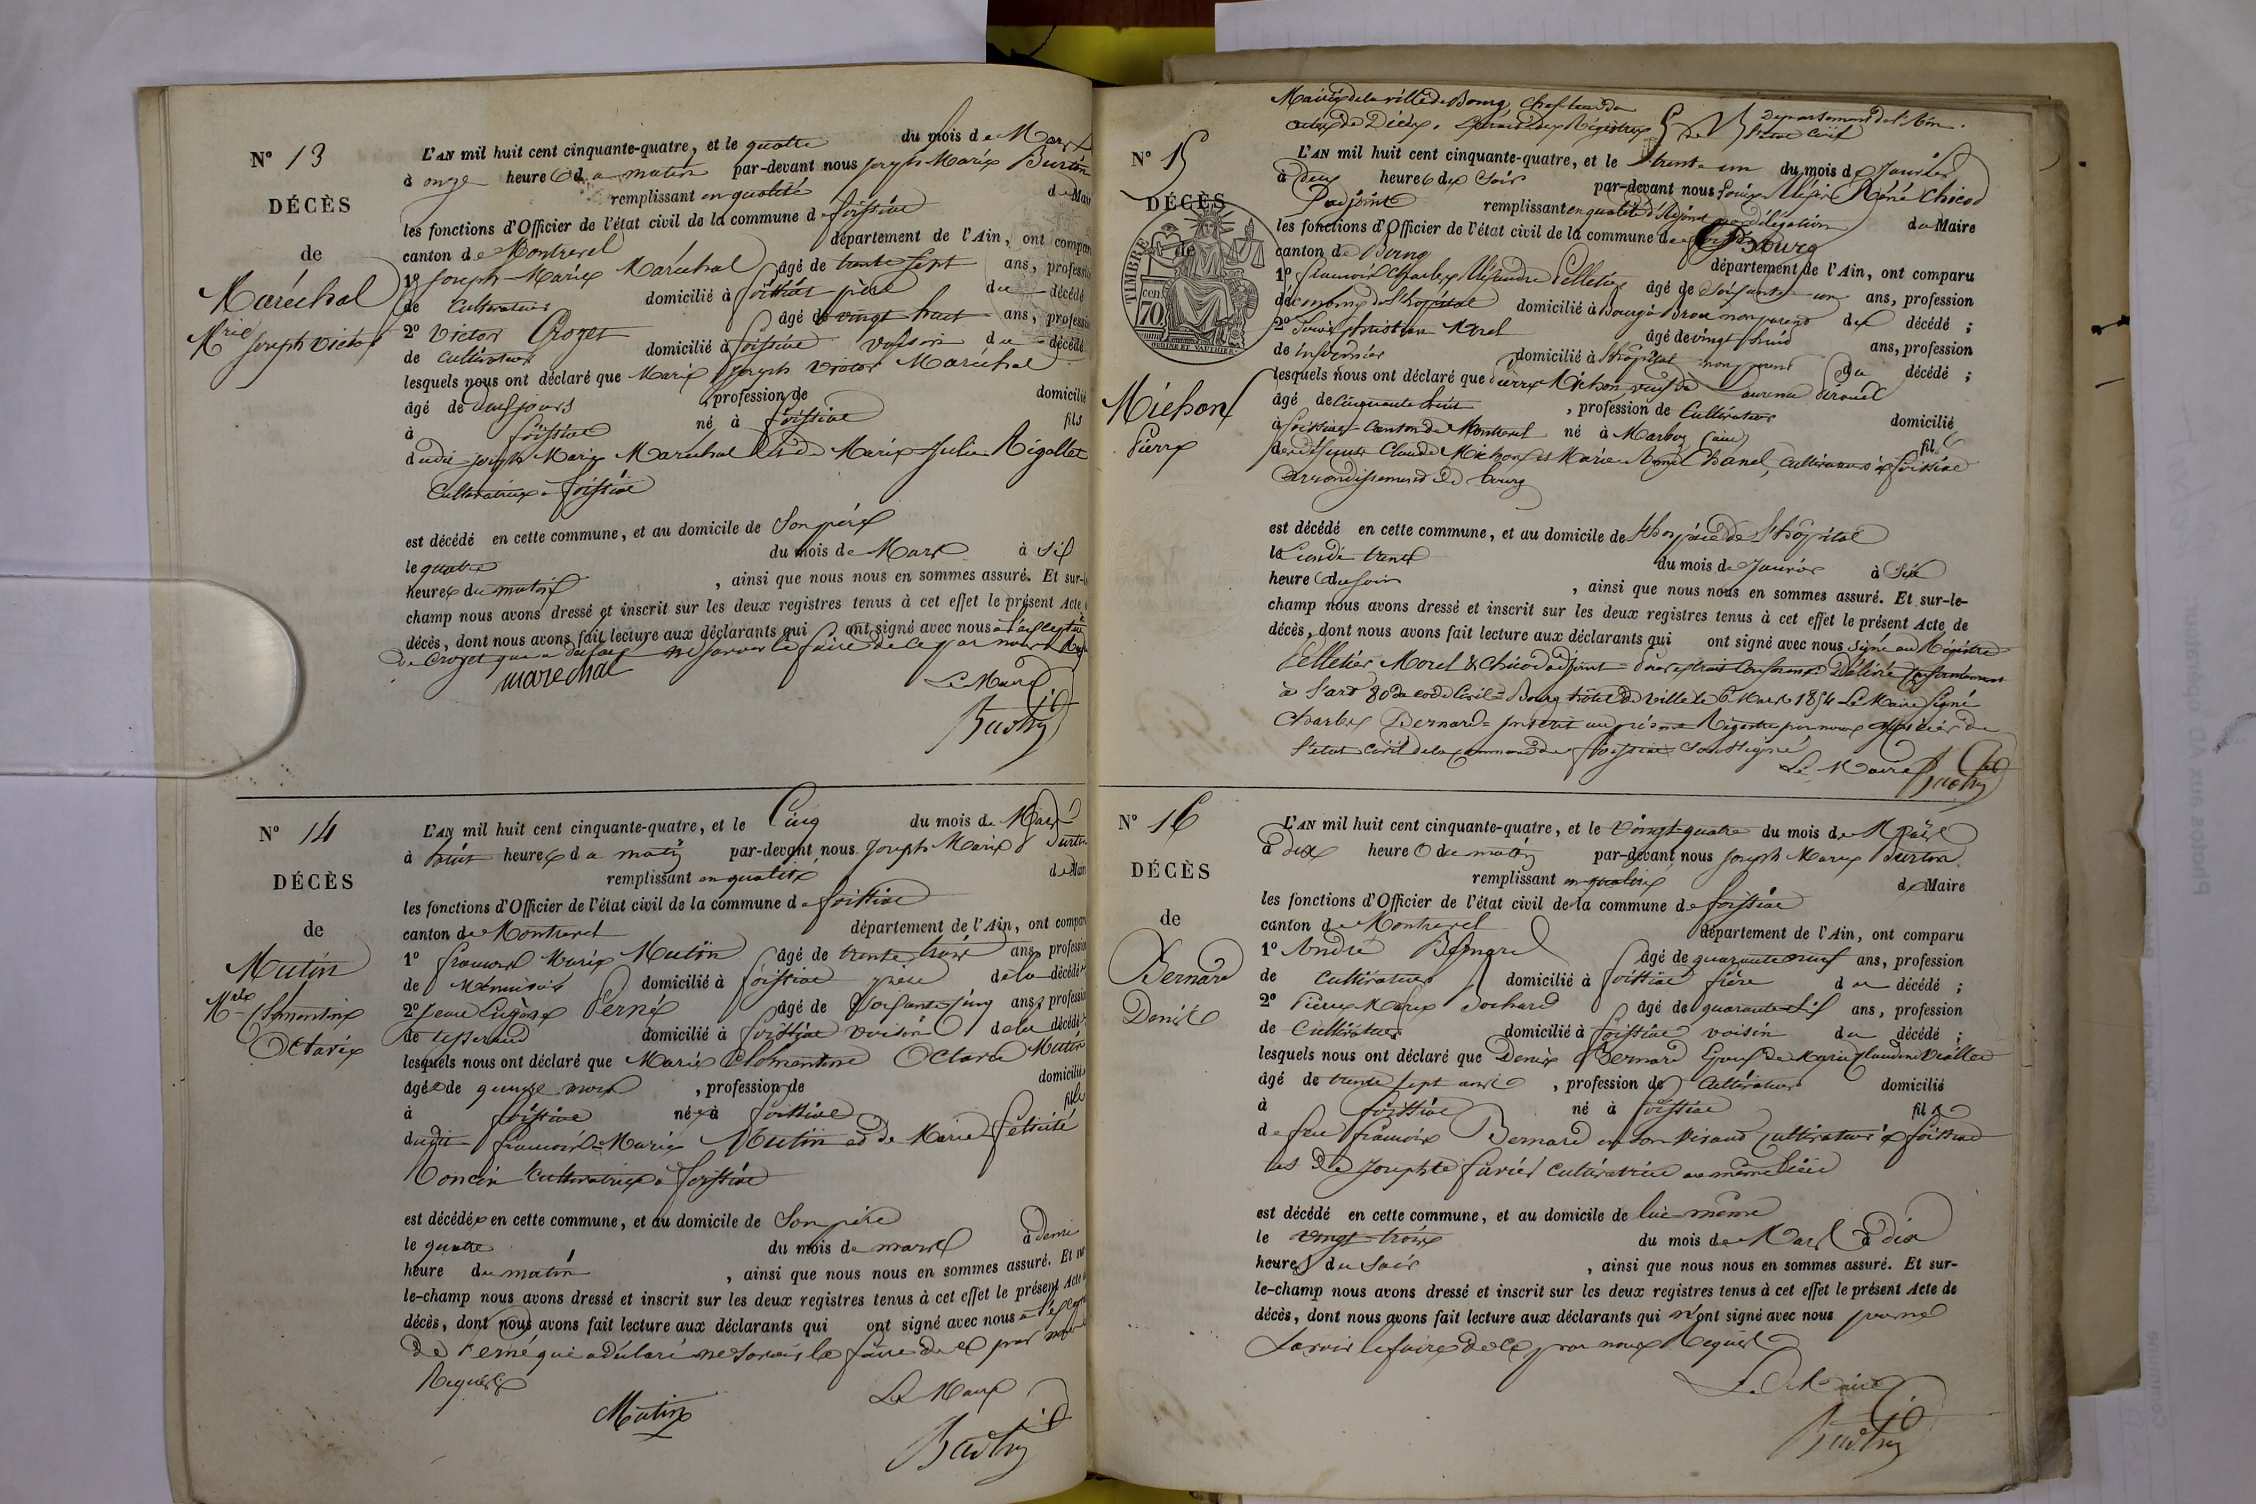 N° 13
DÉCÈS
de
Maréchal
Mrie Joseph Victor
L'AN mil huit cent cinquante-quatre, et le quatre du mois de Mars
à onze heures du matin par-devant nous Joseph Marie Burtin
remplissant en qualité de Maire
les fonctions d'Officier de l'état civil de la commune de foissiat
canton de Montrevel département de l'Ain, ont comparu
1° Joseph-Marie Maréchal âgé de trente sept ans, profession
de Cultivateur domicilié à foissiat père du décédé
2° Victor Crozet âgé de vingt huit ans, profession
de Cultivateur domicilié à foissiat voisin du décédé
lesquels nous ont déclaré que Marie Joseph Victor Maréchal
âgé de deux jours , profession de domicilié
à foissiat né à foissiat fils
dudit Joseph Marie Maréchal et de Marie Julie Rigollet
Cultivatrice à foissiat
est décédé en cette commune, et au domicile de Son père
le quatre du mois de Mars à six
heures du matin , ainsi que nous nous en sommes assuré. Et sur-le-
champ nous avons dressé et inscrit sur les deux registres tenus à cet effet le présent Acte
décès, dont nous avons fait lecture aux déclarants qui ont signé avec nous à l'exception
de Crozet qui a déclaré ne savoir le faire de ce par nous Req
marechal
Le Maire
N° 14
DÉCÈS
de
Mutin
Mrie Clémentine
Octavie
L'AN mil huit cent cinquante-quatre, et le Cinq du mois de Mars
à huit heures du matin par-devant nous Joseph Marie Burtin
remplissant en qualité de Maire
les fonctions d'Officier de l'état civil de la commune de foissiat
canton de Montrevel département de l'Ain, ont comparu
1° francois Marie Mutin âgé de trente trois ans, profession
de Menuisier domicilié à foissiat père de la décédée
2° Jean Eugène Perné âgé de soixante cinq ans, profession
de tisserand domicilié à foissiat voisin de la décédée
lesquels nous ont déclaré que Marie Clémentine Octavie Mutin
âgée de quinze mois , profession de domiciliée
à foissiat née à foissiat fille
dudit francois Marie Mutin et de Marie félicité
Poncin Cultivatrice à foissiat
est décédée en cette commune, et au domicile de Son père
le quatre du mois de mars à demi
heure du matin , ainsi que nous nous en sommes assuré. Et sur
le-champ nous avons dressé et inscrit sur les deux registres tenus à cet effet le présent Acte
décès, dont nous avons fait lecture aux déclarants qui ont signé avec nous à l'exception
de Perné qui a déclaré ne savoir le faire de ce par nous
Requis
Mutin
Le Maire
Mairie de la ville de Bourg, Chef lieu du Département de l'Ain.
actes de Décès. Extrait des Régistres de l'état Civil
N° 15
DÉCÈS
de
TIMBRE
70
Michon
Pierre
L'AN mil huit cent cinquante-quatre, et le trente un du mois de Janvier
à deux heures du Soir par-devant nous Louis René Chicod
adjoint remplissant en qualité d'adjoint par délégation du Maire
les fonctions d'Officier de l'état civil de la commune de Bourg
canton de Bourg département de l'Ain, ont comparu
1° francois Charles Alexandre Pelletier âgé de soixante un ans, profession
d'économe de l'hopital domicilié à Bourg à Brou non parent du décédé ;
2° Morel âgé de vingt huit ans, profession
de infirmier domicilié à l'hopital non parent du décédé ;
lesquels nous ont déclaré que Pierre Michon, veuf de
âgé de cinquante huit , profession de Cultivateur domicilié
à foissiat Canton de Montrevel né à Marboz (ain) fils
de défunts Claude Michon et Marie Cultivateurs à foissiat
arrondissement de bourg
est décédé en cette commune, et au domicile de l'hospice de l'hôpital
le Lundi trente du mois de Janvier à Six
heures du soir , ainsi que nous nous en sommes assuré. Et sur-le-
champ nous avons dressé et inscrit sur les deux registres tenus à cet effet le présent Acte de
décès, dont nous avons fait lecture aux déclarants qui ont signé avec nous signé au Régistre
Pelletier Morel & Chicod adjoint = Pour extrait Conforme Délivré Conformément
à l'art 80 du code Civil = Bourg hôtel de ville le 6 Mars 1854 Le Maire Signé
Charles Bernard = Inscrit au présent Régistre par nous officier de
l'état civil de la commune de foissiat Soussigné
Le Maire
N° 16
DÉCÈS
de
Bernard
Denis
L'AN mil huit cent cinquante-quatre, et le vingt-quatre du mois de Mars
à dix heures du matin par-devant nous Joseph Marie Burtin
remplissant en qualité de Maire
les fonctions d'Officier de l'état civil de la commune de foissiat
canton de Montrevel département de l'Ain, ont comparu
1° André Bernard âgé de quarante neuf ans, profession
de Cultivateur domicilié à foissiat frère du décédé ;
2° Pierre Marie Sochard âgé de quarante six ans, profession
de Cultivateur domicilié à foissiat voisin du décédé ;
lesquels nous ont déclaré que Denis Bernard Epoux de Marie Claudine Viallet
âgé de trente sept ans , profession de Cultivateur domicilié
à foissiat né à foissiat fils
de feu francois Bernard en son vivant Cultivateur à foissiat
et de Josephte favier Cultivatrice au même lieu
est décédé en cette commune, et au domicile de lui même
le vingt-trois du mois de Mars à dix
heures du Soir , ainsi que nous nous en sommes assuré. Et sur-
le-champ nous avons dressé et inscrit sur les deux registres tenus à cet effet le présent Acte de
décès, dont nous avons fait lecture aux déclarants qui n'ont signé avec nous pour ne
Savoir le faire de ce par nous Requis
Le Maire